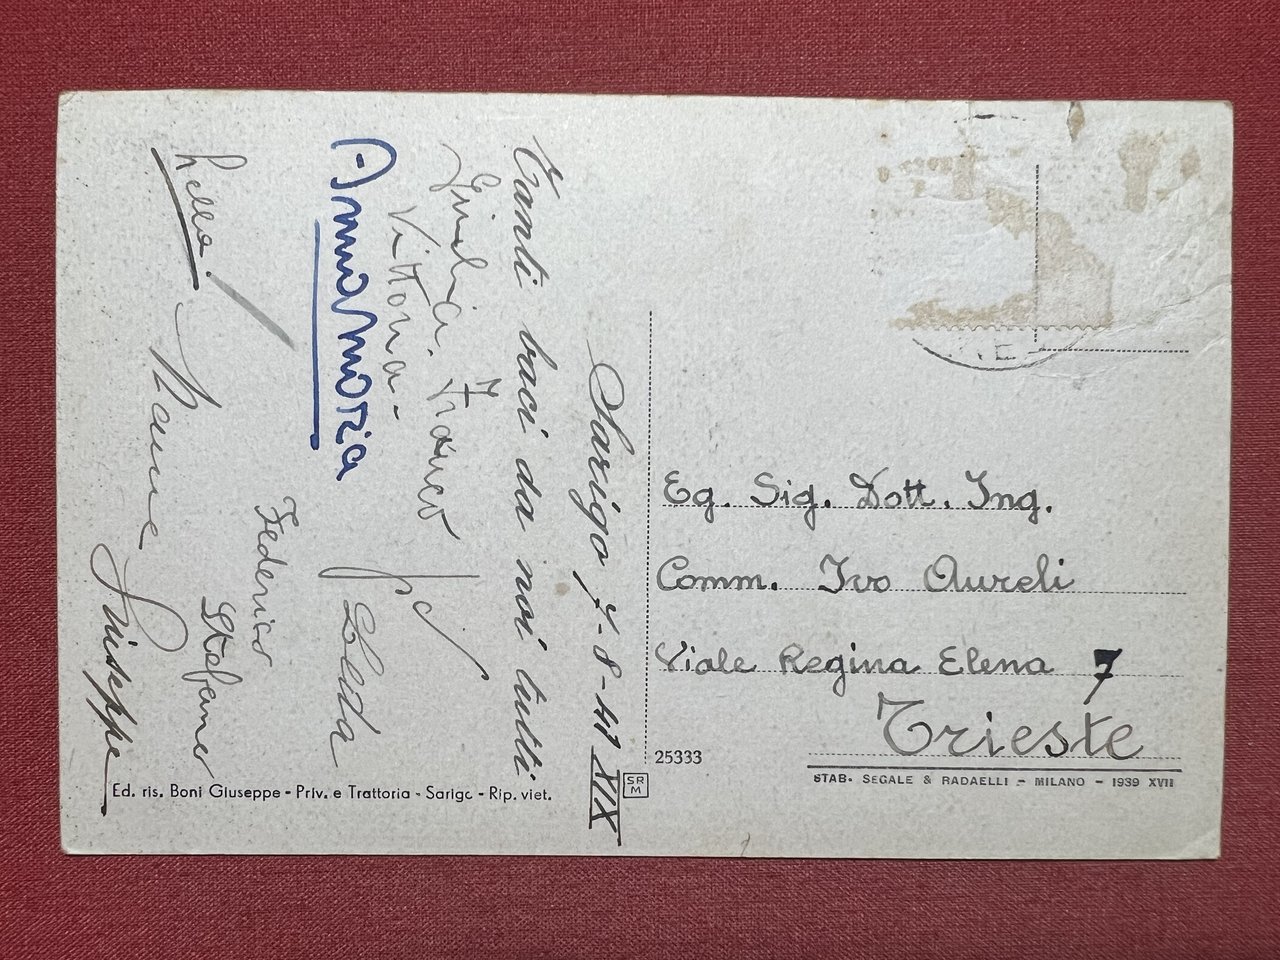 Sarigo 7-8-41 XIX
Tanti baci da noi tutti
Giulia. Franco
Vittoria -
AnnaMaria
Leda
Federico
Stefano
Lella!
Giuseppe
Eg. Sig. Dott. Ing.
Comm. Ivo Aureli
Viale Regina Elena 7
Trieste
25333
STAB. SEGALE & RADAELLI - MILANO - 1939 XVII
SR
M
Ed. ris. Boni Giuseppe - Priv. e Trattoria - Sarigo - Rip. viet.